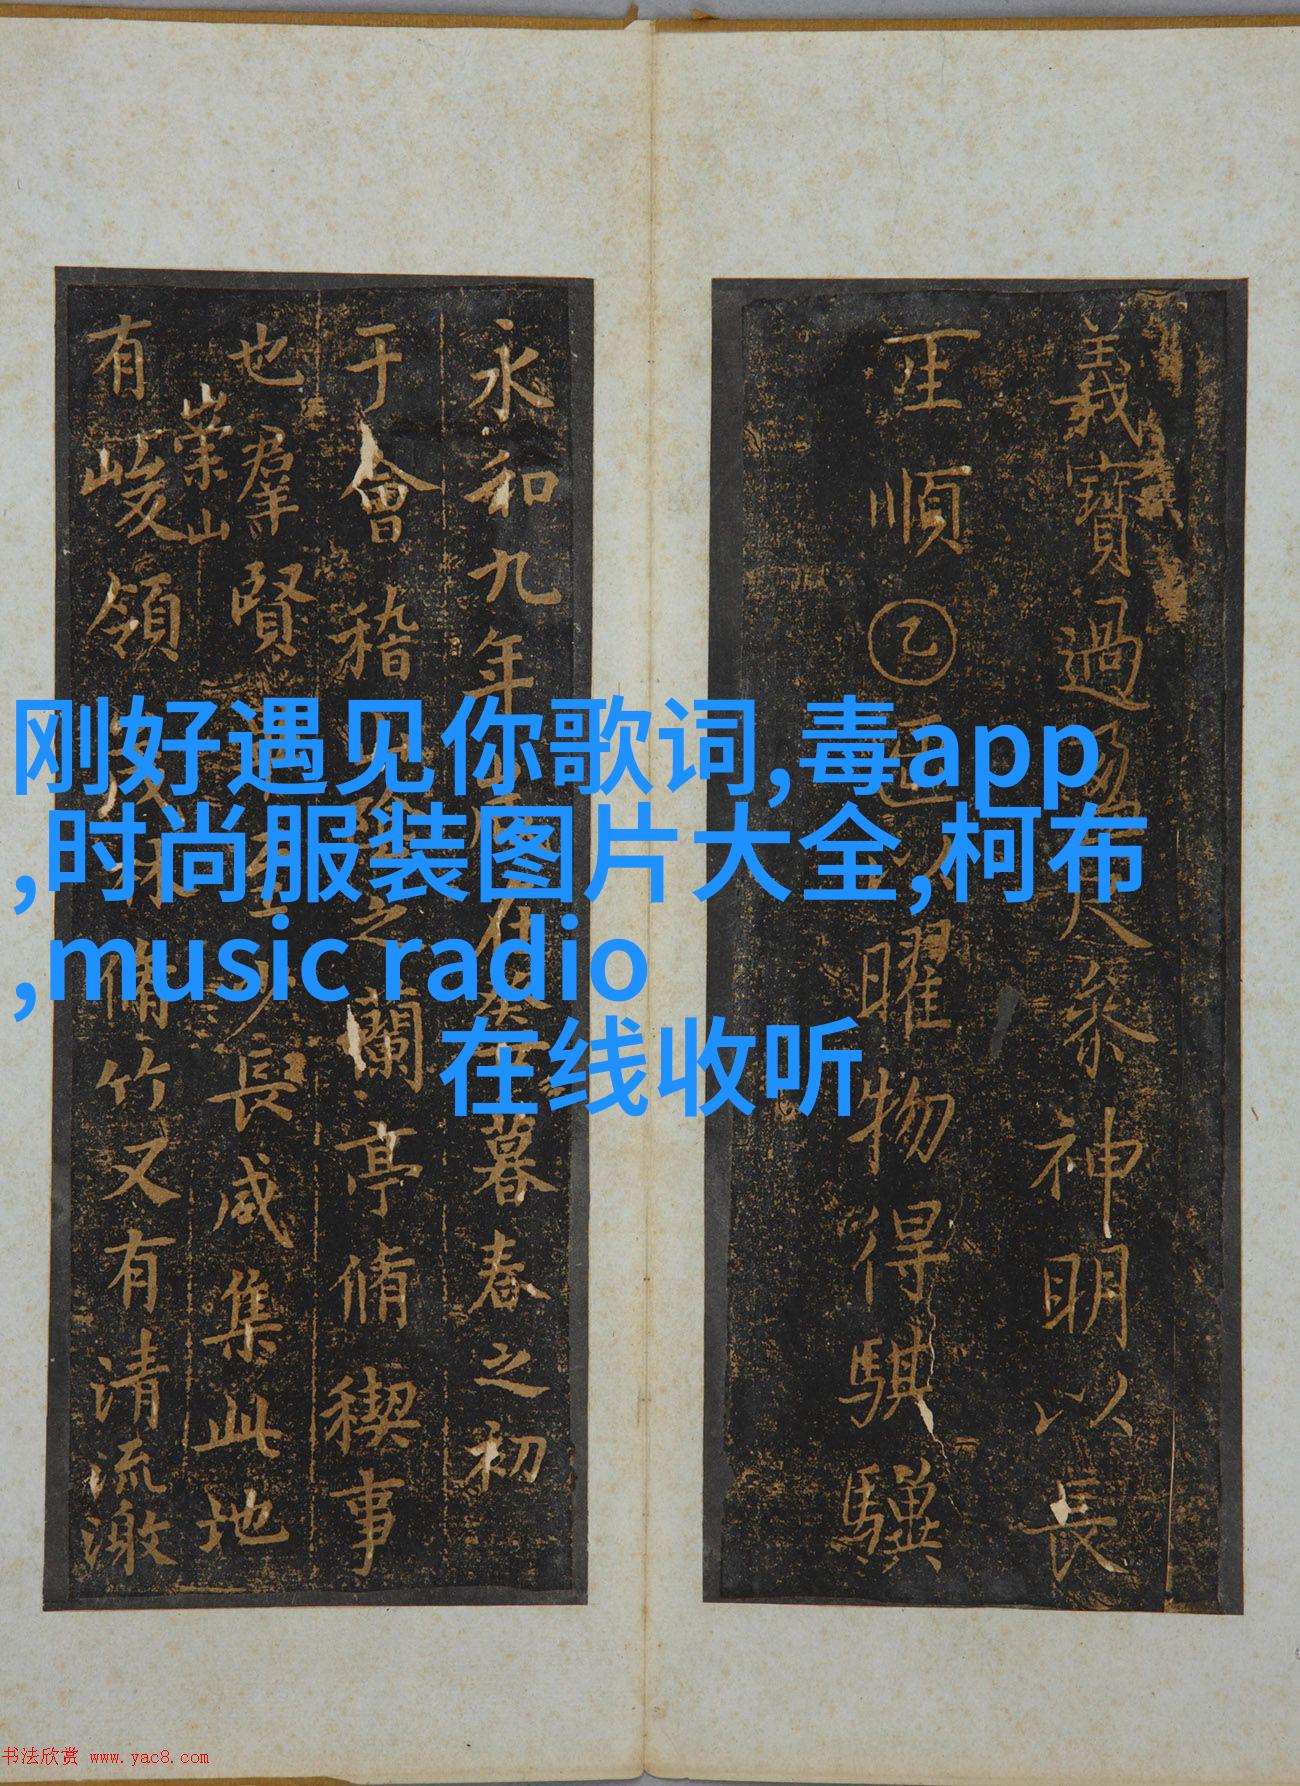 刚好遇见你歌词,毒app
,时尚服装图片大全,柯布
,music radio
在线收听
義寶過大叅神明以長
順乙曜物得騏驥
永和九年在癸暮春之初
于會稽山陰之蘭亭脩禊事
也群賢至少長咸集此地
崇山
有峻領茂林脩竹又有清流激
书法欣赏 www.yac8.com